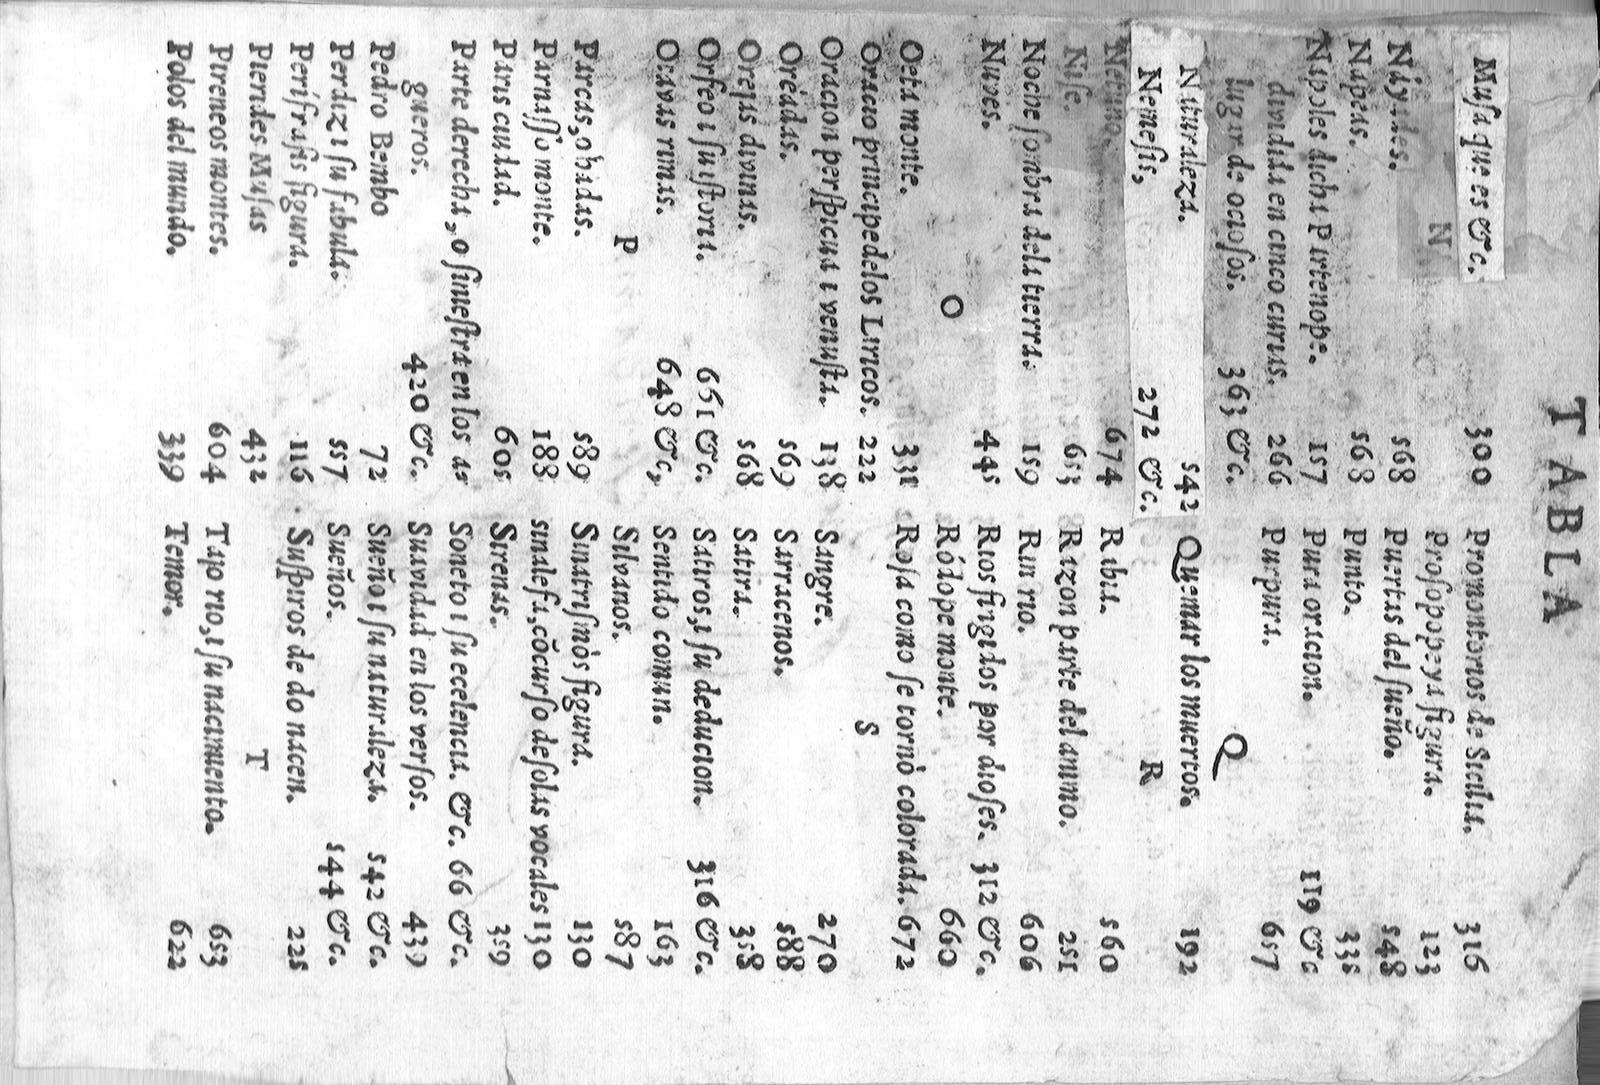 TABLA
Musa que es &c. 300
N
Náyades. 568
Napeas. 568
Nápoles dicha Partenope. 157
dividida en cinco curias. 266
lugar de ociosos. 363 &c.
Naturaleza. 542
Nemesis, 272 &c.
Nereo. 674
Nise. 653
Noche sombra dela tierra. 159
Nuves. 445
O
Oeta monte. 331
Oracio principe delos Liricos. 222
Oracion perspicua i venusta. 138
Oréadas. 569
Orejas divinas. 568
Orfeo i su istoria. 651 &c.
Otavas rimas. 648 &c,
P
Parcas, o hadas. 589
Parnasso monte. 188
Paris ciudad. 605
Parte derecha, o siniestra en los a-
gueros. 420 &c.
Pedro Bembo 72
Perdiz i su fabula. 557
Perífrasis figura. 116
Pierides Musas 432
Pireneos montes. 604
Polos del mundo. 339
Promontorios de Sicilia. 316
Prosopopeya figura. 123
Puertas del sueño. 548
Punto. 335
Pura oracion. 119 &c
Purpura. 657
Q
Quemar los muertos. 192
R
Rabia. 560
Razon parte del animo. 251
Rin rio. 606
Rios fingidos por dioses. 312 &c.
Ródope monte. 660
Rosa como se tornò colorada. 672
S
Sangre. 270
Sarracenos. 588
Satira. 358
Satiros, i su deducion. 316 &c.
Sentido comun. 163
Silvanos. 587
Sinatrismòs figura. 130
sinalefa, cõcurso de solas vocales 130
Sirenas. 359
Soneto i su ecelencia. &c. 66 &c.
Suavidad en los versos. 439
Sueño i su naturaleza. 542 &c.
Sueños. 544 &c.
Suspiros de do nacen. 225
T
Tajo rio, i su nacimiento. 653
Temor. 622